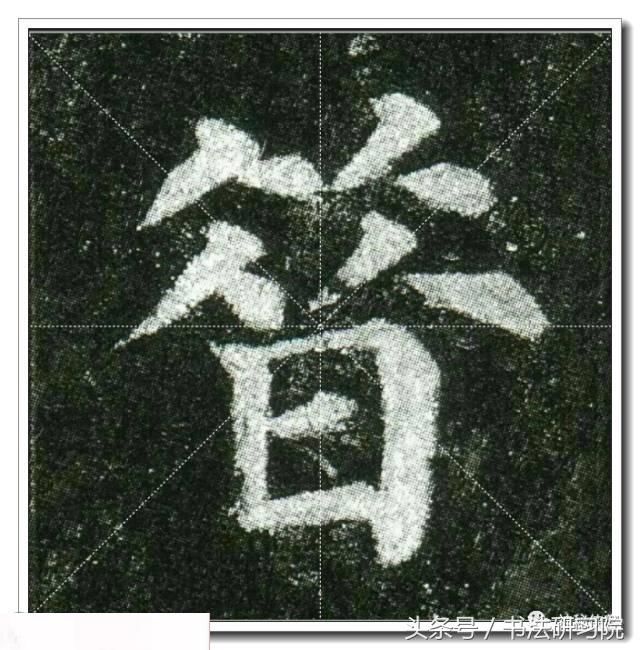 㫺
头条号 / 书法研习院